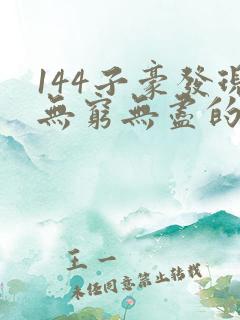 144子豪發現
無窮無盡的
王一
未經同意禁止轉載